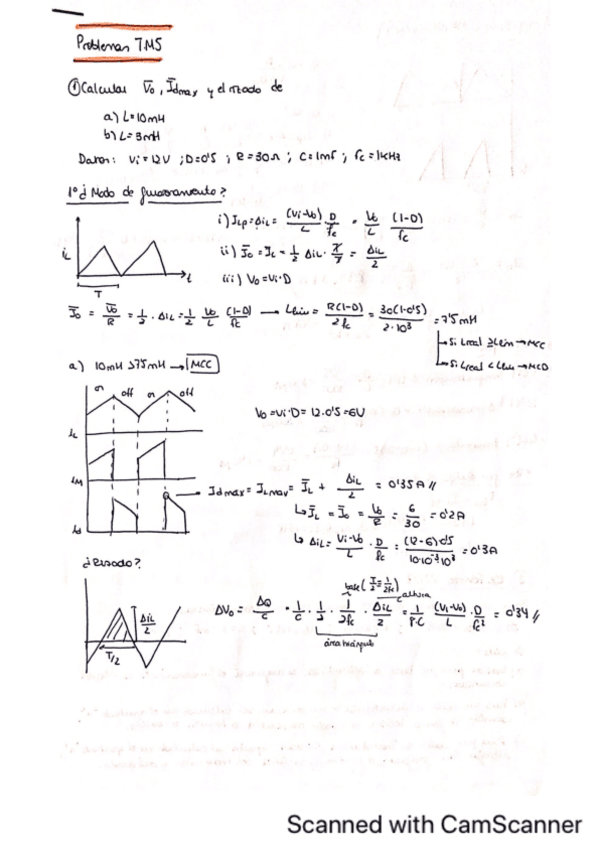 Problemas T.M5
① Calcular V̄o, Īdmax y el rizado de
a) L=10mH
b) L=3mH
Datos: Vi=12V ; D=0'5 ; R=30Ω ; C=1mF ; fc=1kHz
1º ¿Modo de funcionamiento?
i) ILp=ΔiL= (Vi-Vo)/L · D/fc = Vo/L (1-D)/fc
ii) Īo=ĪL= 1/2 ΔiL · T/T = ΔiL/2
iii) Vo=Vi·D
iL
t
T
Īo = V̄o/R = 1/2 · ΔiL = 1/2 Vo/L (1-D)/fc → Llim = R(1-D)/2fc = 30(1-0'5)/2·10³ = 7'5mH
Si Lreal ≥ Llim → MCC
Si Lreal < Llim → MCD
a) 10mH > 7'5mH → MCC
on off on off
Vo=Vi·D=12·0'5=6V
iL
iM
Idmax=ILmax= ĪL + ΔiL/2 = 0'35A //
↳ ĪL = Īo = Vo/R = 6/30 = 0'2A
id
↳ ΔiL= Vi-Vo/L · D/fc = (12-6)0'5/10·10⁻³·10³ = 0'3A
¿Rizado?
base (T/2=1/2fc)
altura
ΔVo = ΔQ/C = 1/C · 1/2 · 1/2fc · ΔiL/2 = 1/8·C (Vi-Vo)/L · D/fc² = 0'34 //
ΔiL/2
T/2
área triángulo
Scanned with CamScanner